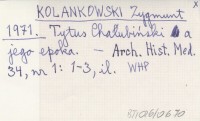 KOLANKOWSKI Zygmunt
1971. Tytus Chałubiński a
jego epoka. - Arch. Hist. Med.
34, nr 1: 1-3, il. WHP